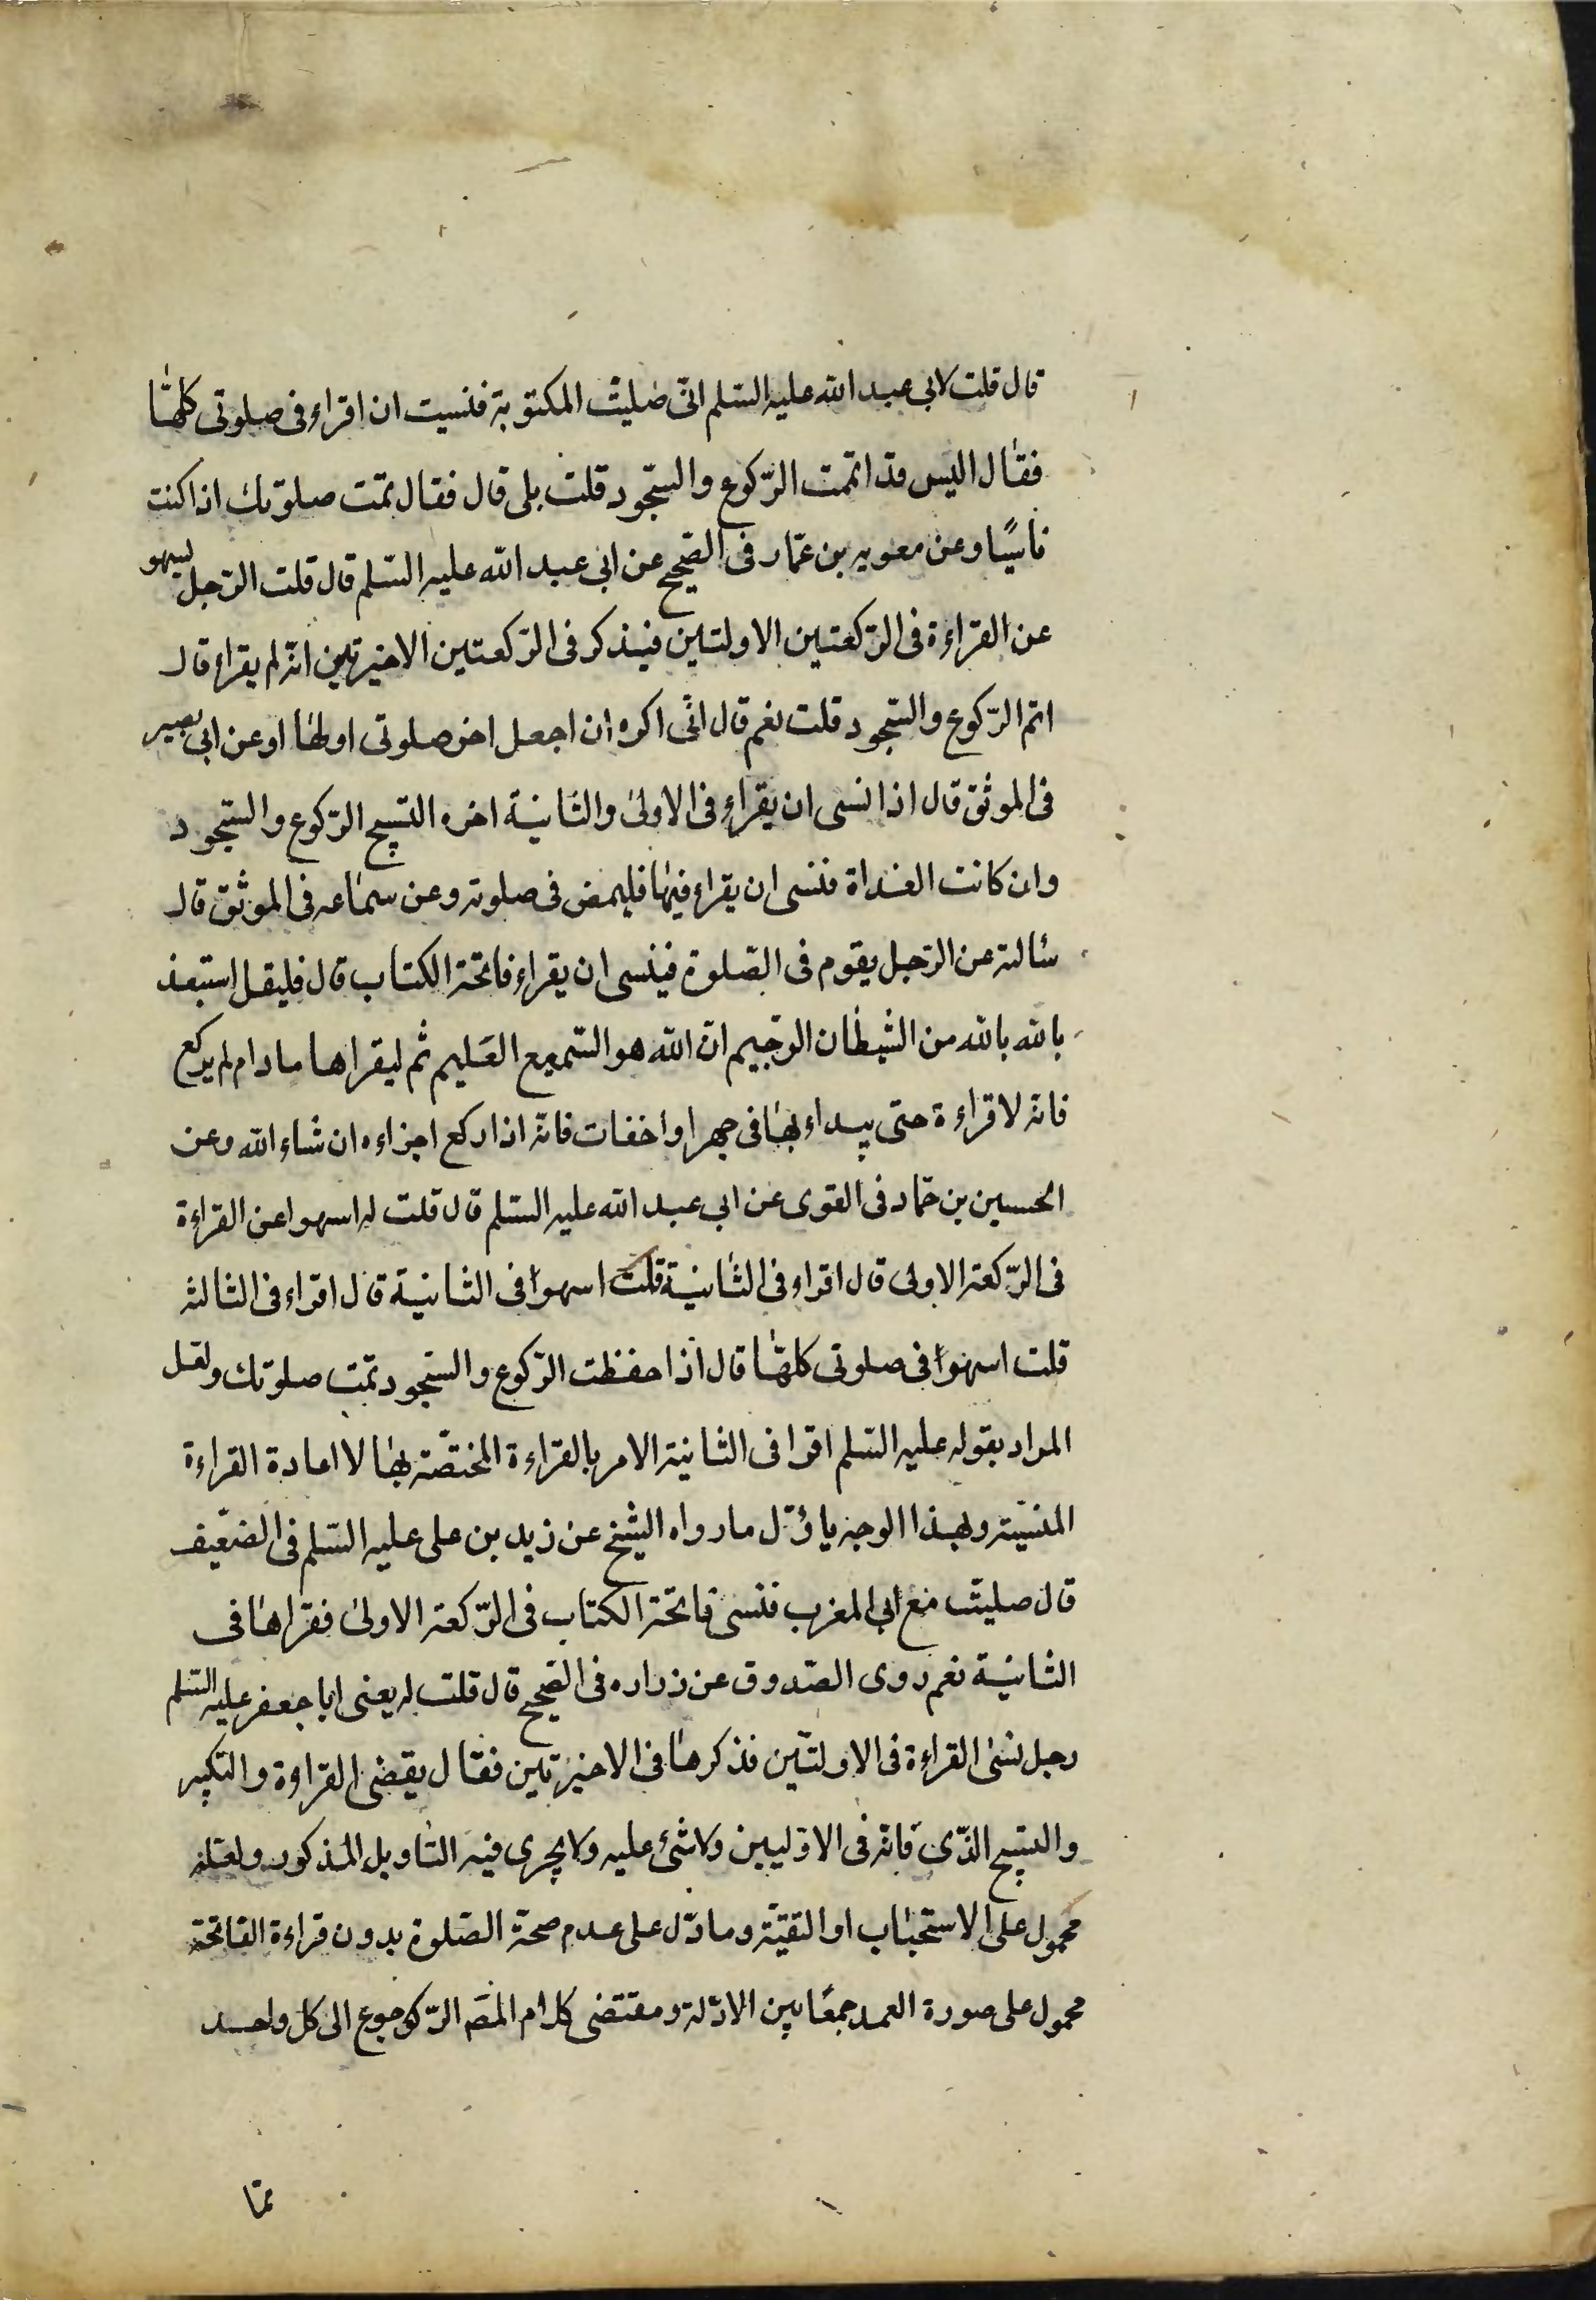 قال قلت لابى عبد الله عليه السّلم انّى صليت المكتوبة فنسيت ان اقراء فى صلوتى كلها
فقال اليس قد اتممت الرّكوع والسّجود قلت بلى قال فقال تمّت صلوتك اذا كنت
ناسيًا وعن معويه بن عمّار فى الصّحيح عن ابى عبد الله عليه السّلم قال قلت الرّجل ليسهو
عن القراءة فى الرّكعتين الاولتين فيذكر فى الرّكعتين الاخيرتين انّه لم يقراء قال
اتم الرّكوع والسّجود قلت نعم قال انّى اكره ان اجعل اخر صلوتى اولها او عن ابى بصير
فى الموثق قال اذا نسى ان يقراء فى الاولى والثانية اخره التسبيح الرّكوع والسّجود
وان كانت الغداة فنسى ان يقراء فيها فليمض فى صلوته وعن سماعه فى الموثّق قال
سالته عن الرّجل يقوم فى الصّلوة فينسى ان يقراء فاتحة الكتاب قال فليقل استعذ
بالله بالله من الشيطان الرّجيم انّ الله هو السّميع العليم ثم ليقراها مادام لم يركع
فانه لا قراءة حتى يبداء بها فى جهر او اخفات فانّه اذا ركع اجزاءه ان شاء الله وعن
الحسين بن حمّاد فى القوى عن ابى عبد الله عليه السّلم قال قلت له اسهوا عن القراءة
فى الرّكعة الاولى قال اقراء فى الثانية قلت اسهوا فى الثانية قال اقراء فى الثالثه
قلت اسهوا فى صلوتى كلها قال اذا حفظت الرّكوع والسّجود تمّت صلوتك ولعل
المراد بقوله عليه السّلم اقرا فى الثانية الامر بالقراءة المختصّة بها لا اعادة القراءة
المنسيّة وبهذا الوجه ياؤّل ما رواه الشيخ عن زيد بن على عليه السّلم فى الضعيف
قال صليت مع ابى المغرب فنسى فاتحة الكتاب فى الرّكعة الاولى فقراها فى
الثانية نعم روى الصّدوق عن زراره فى الصّحيح قال قلت له يعنى ابا جعفر عليه السّلم
رجل نسى القراءة فى الاولتين فذكرها فى الاخيرتين فقال يقضى القراءة والتكبير
والتسبيح الذّى فاته فى الاوّليين ولا شئ عليه ولا يجرى فيه التاويل المذكور ولعلّه
محمول على الاستحباب او التقيّة وما دّل على عدم صحّة الصّلوة بدون قراءة الفاتحة
محمول على صورة العمد جمعًا بين الادّلة ومقتضى كلام المصَ الرّكوجوع الى كل واحد
ممّا